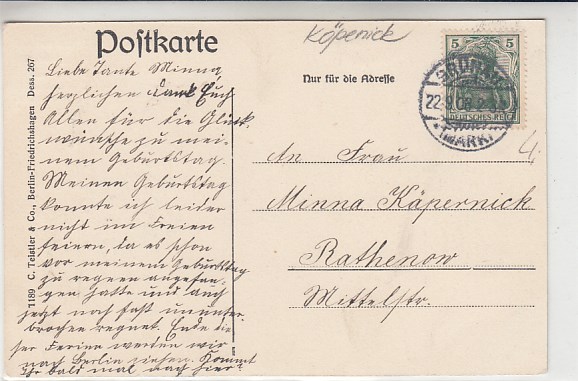 Postkarte
Köpenick
Nur für die Adresse
5 5
22.9.08
DEUTSCHES REICH
(MARK)
Liebe Tante Minna,
herzlichen Dank Euch
Allen für die Glück-
wünsche zu mei-
nem Geburtstag.
Meinen Geburtstag
konnte ich leider
nicht im Freien
feiern, da es schon
vor meinem Geburtstag
zu regnen angefan-
gen hatte und auch
jetzt noch fast ununter-
brochen regnet. Ende die-
ser Ferien werden wir
nach Berlin ziehen. Kommt
Ihr bald mal nach hier?
An Frau
Minna Käpernick
Rathenow
Mittelstr.
4.
1189 C. Telstler & Co., Berlin-Friedrichshagen Dess. 267